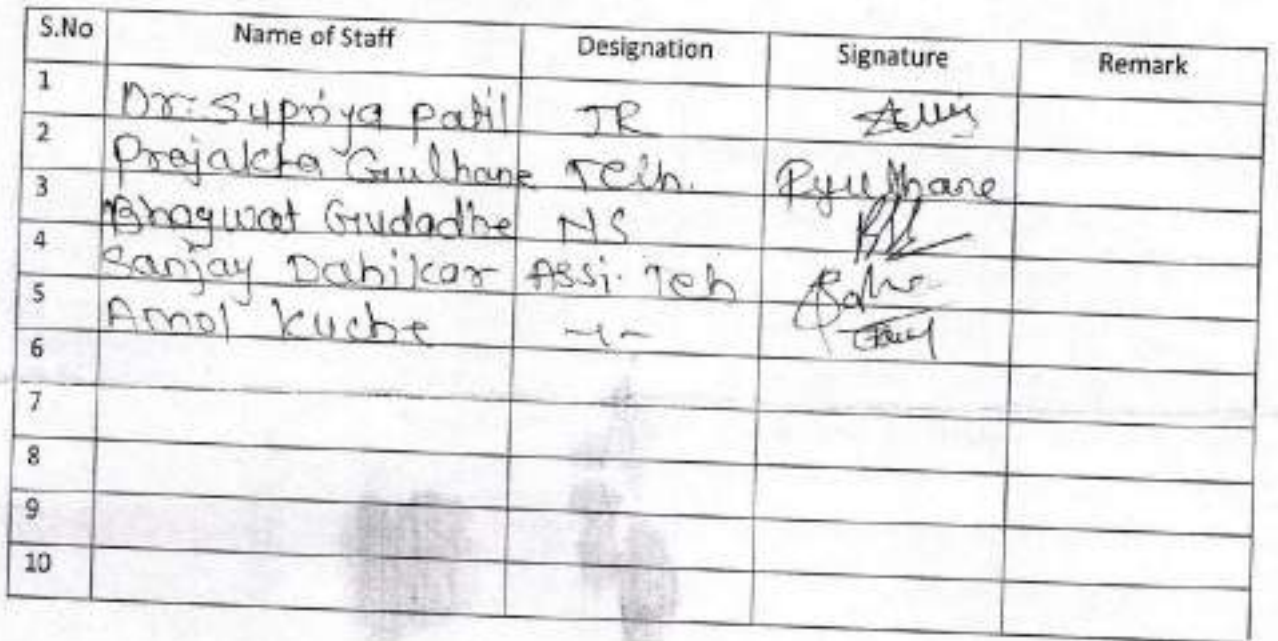 S.No Name of Staff Designation Signature Remark
1 Dr. Supriya Patil JR
2 Prajakta Gulhane Tech. Pgulhane
3 Bhagwat Gudadhe NS
4 Sanjay Dahikar Assi. Teh
5 Amol Kuche -"-
6
7
8
9
10